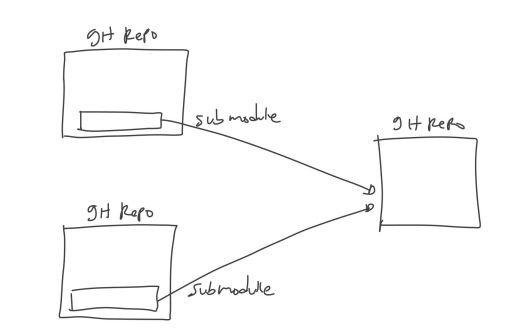 GH Repo
submodule
GH Repo
GH Repo
submodule